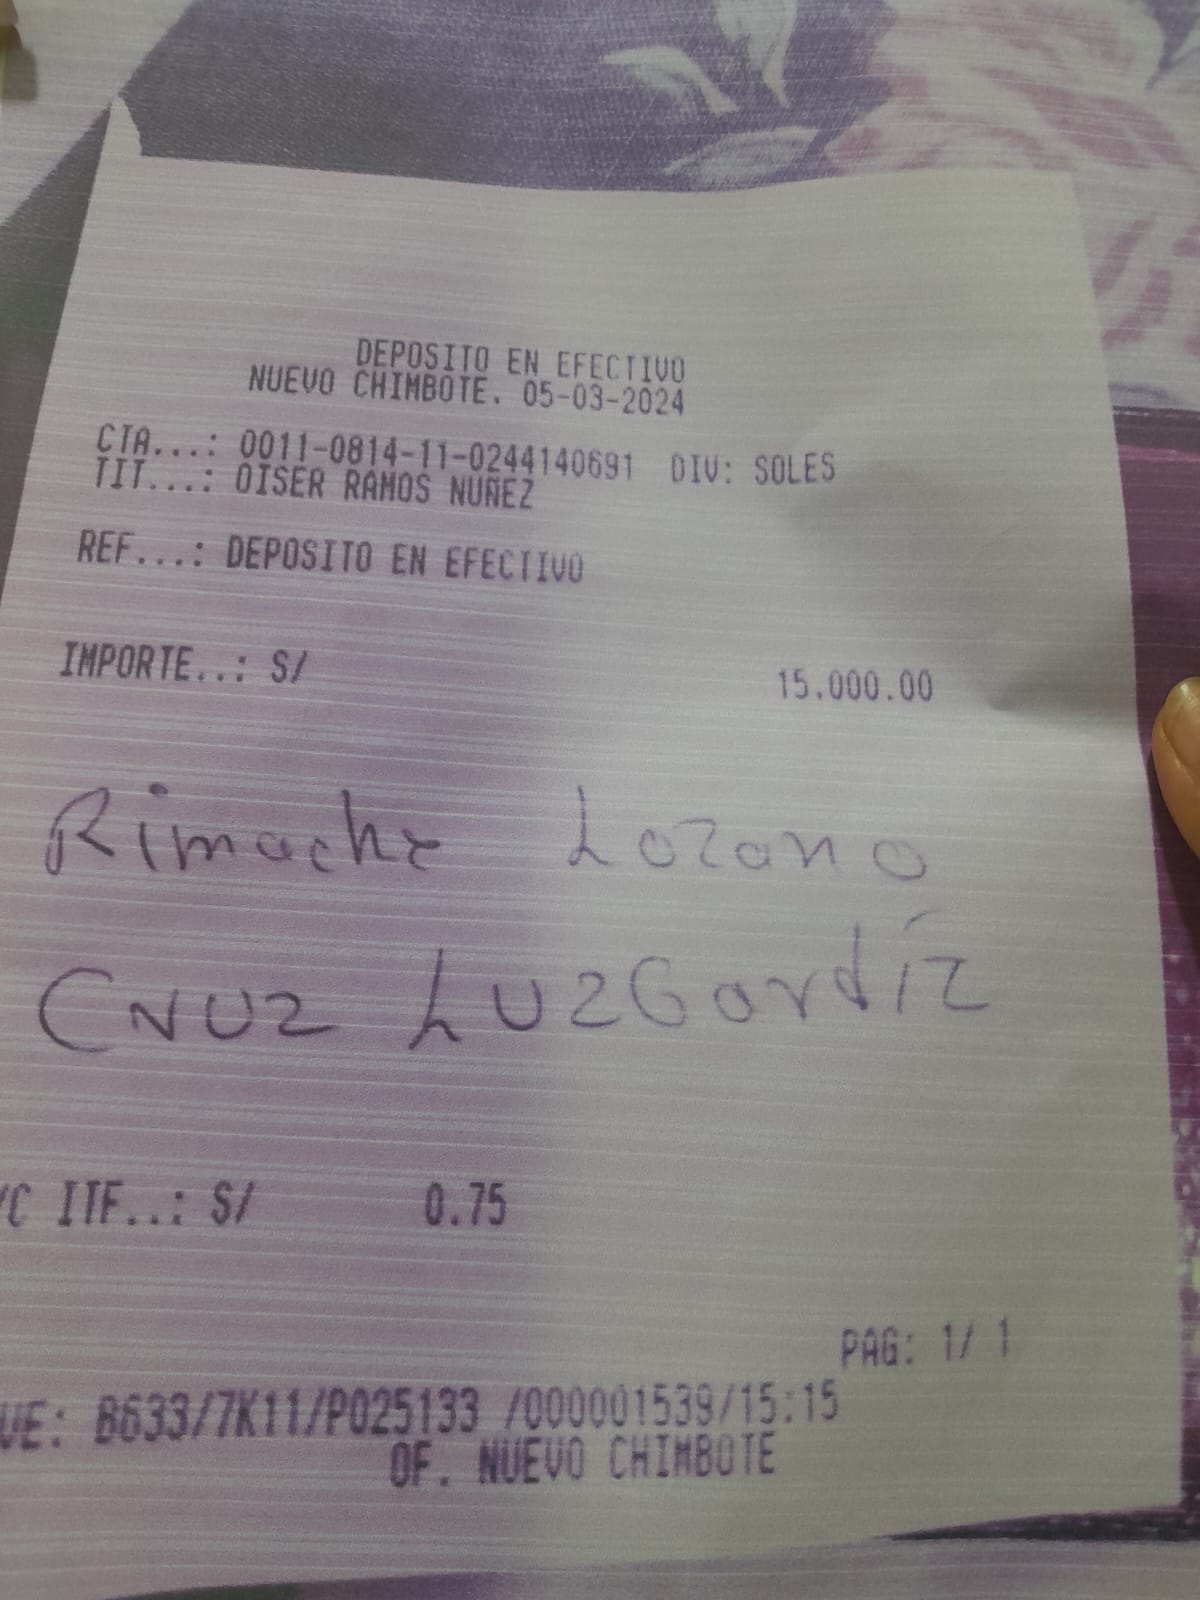 DEPOSITO EN EFECTIVO
NUEVO CHIMBOTE. 05-03-2024
CTA...: 0011-0814-11-0244140691 DIV: SOLES
TIT...: OISER RAMOS NUÑEZ
REF...: DEPOSITO EN EFECTIVO
IMPORTE..: S/ 15.000.00
Rimache Lozano
Cruz Luzgardíz
/C ITF..: S/ 0.75
PAG: 1/ 1
UE: B633/7K11/P025133 /000001539/15:15
OF. NUEVO CHIMBOTE